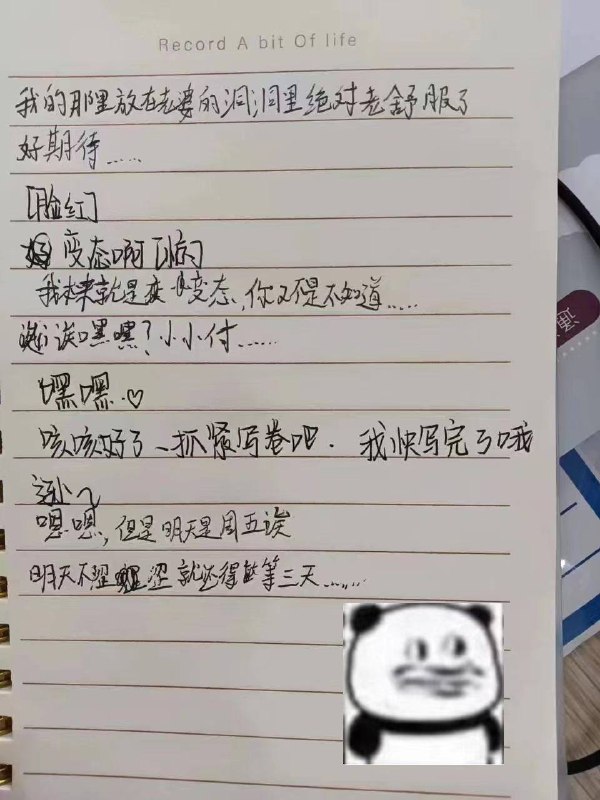 Record A bit Of life
我的那里放在老婆的洞洞里绝对老舒服了
好期待……
[脸红]
变态啊[捂]
我本来就是变态,你又不是不知道……
诶嘿嘿?小小付……
嘿嘿.♡
咳咳好了、抓紧写卷吧. 我快写完了哦
嗯嗯,但是明天是周五诶
明天不涩涩就还得等三天……